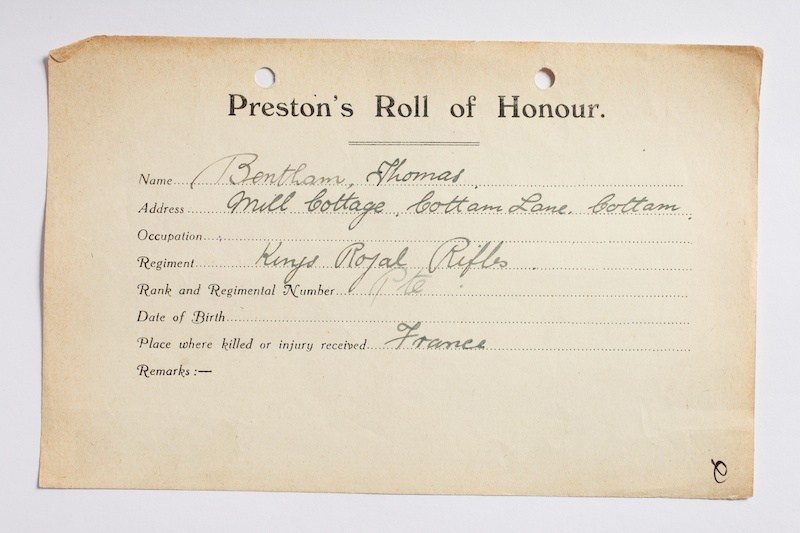 Preston's Roll of Honour.
Name Bentham, Thomas.
Address Mill Cottage, Cottam Lane. Cottam.
Occupation
Regiment Kings Royal Rifles.
Rank and Regimental Number Pte
Date of Birth
Place where killed or injury received France
Remarks:—